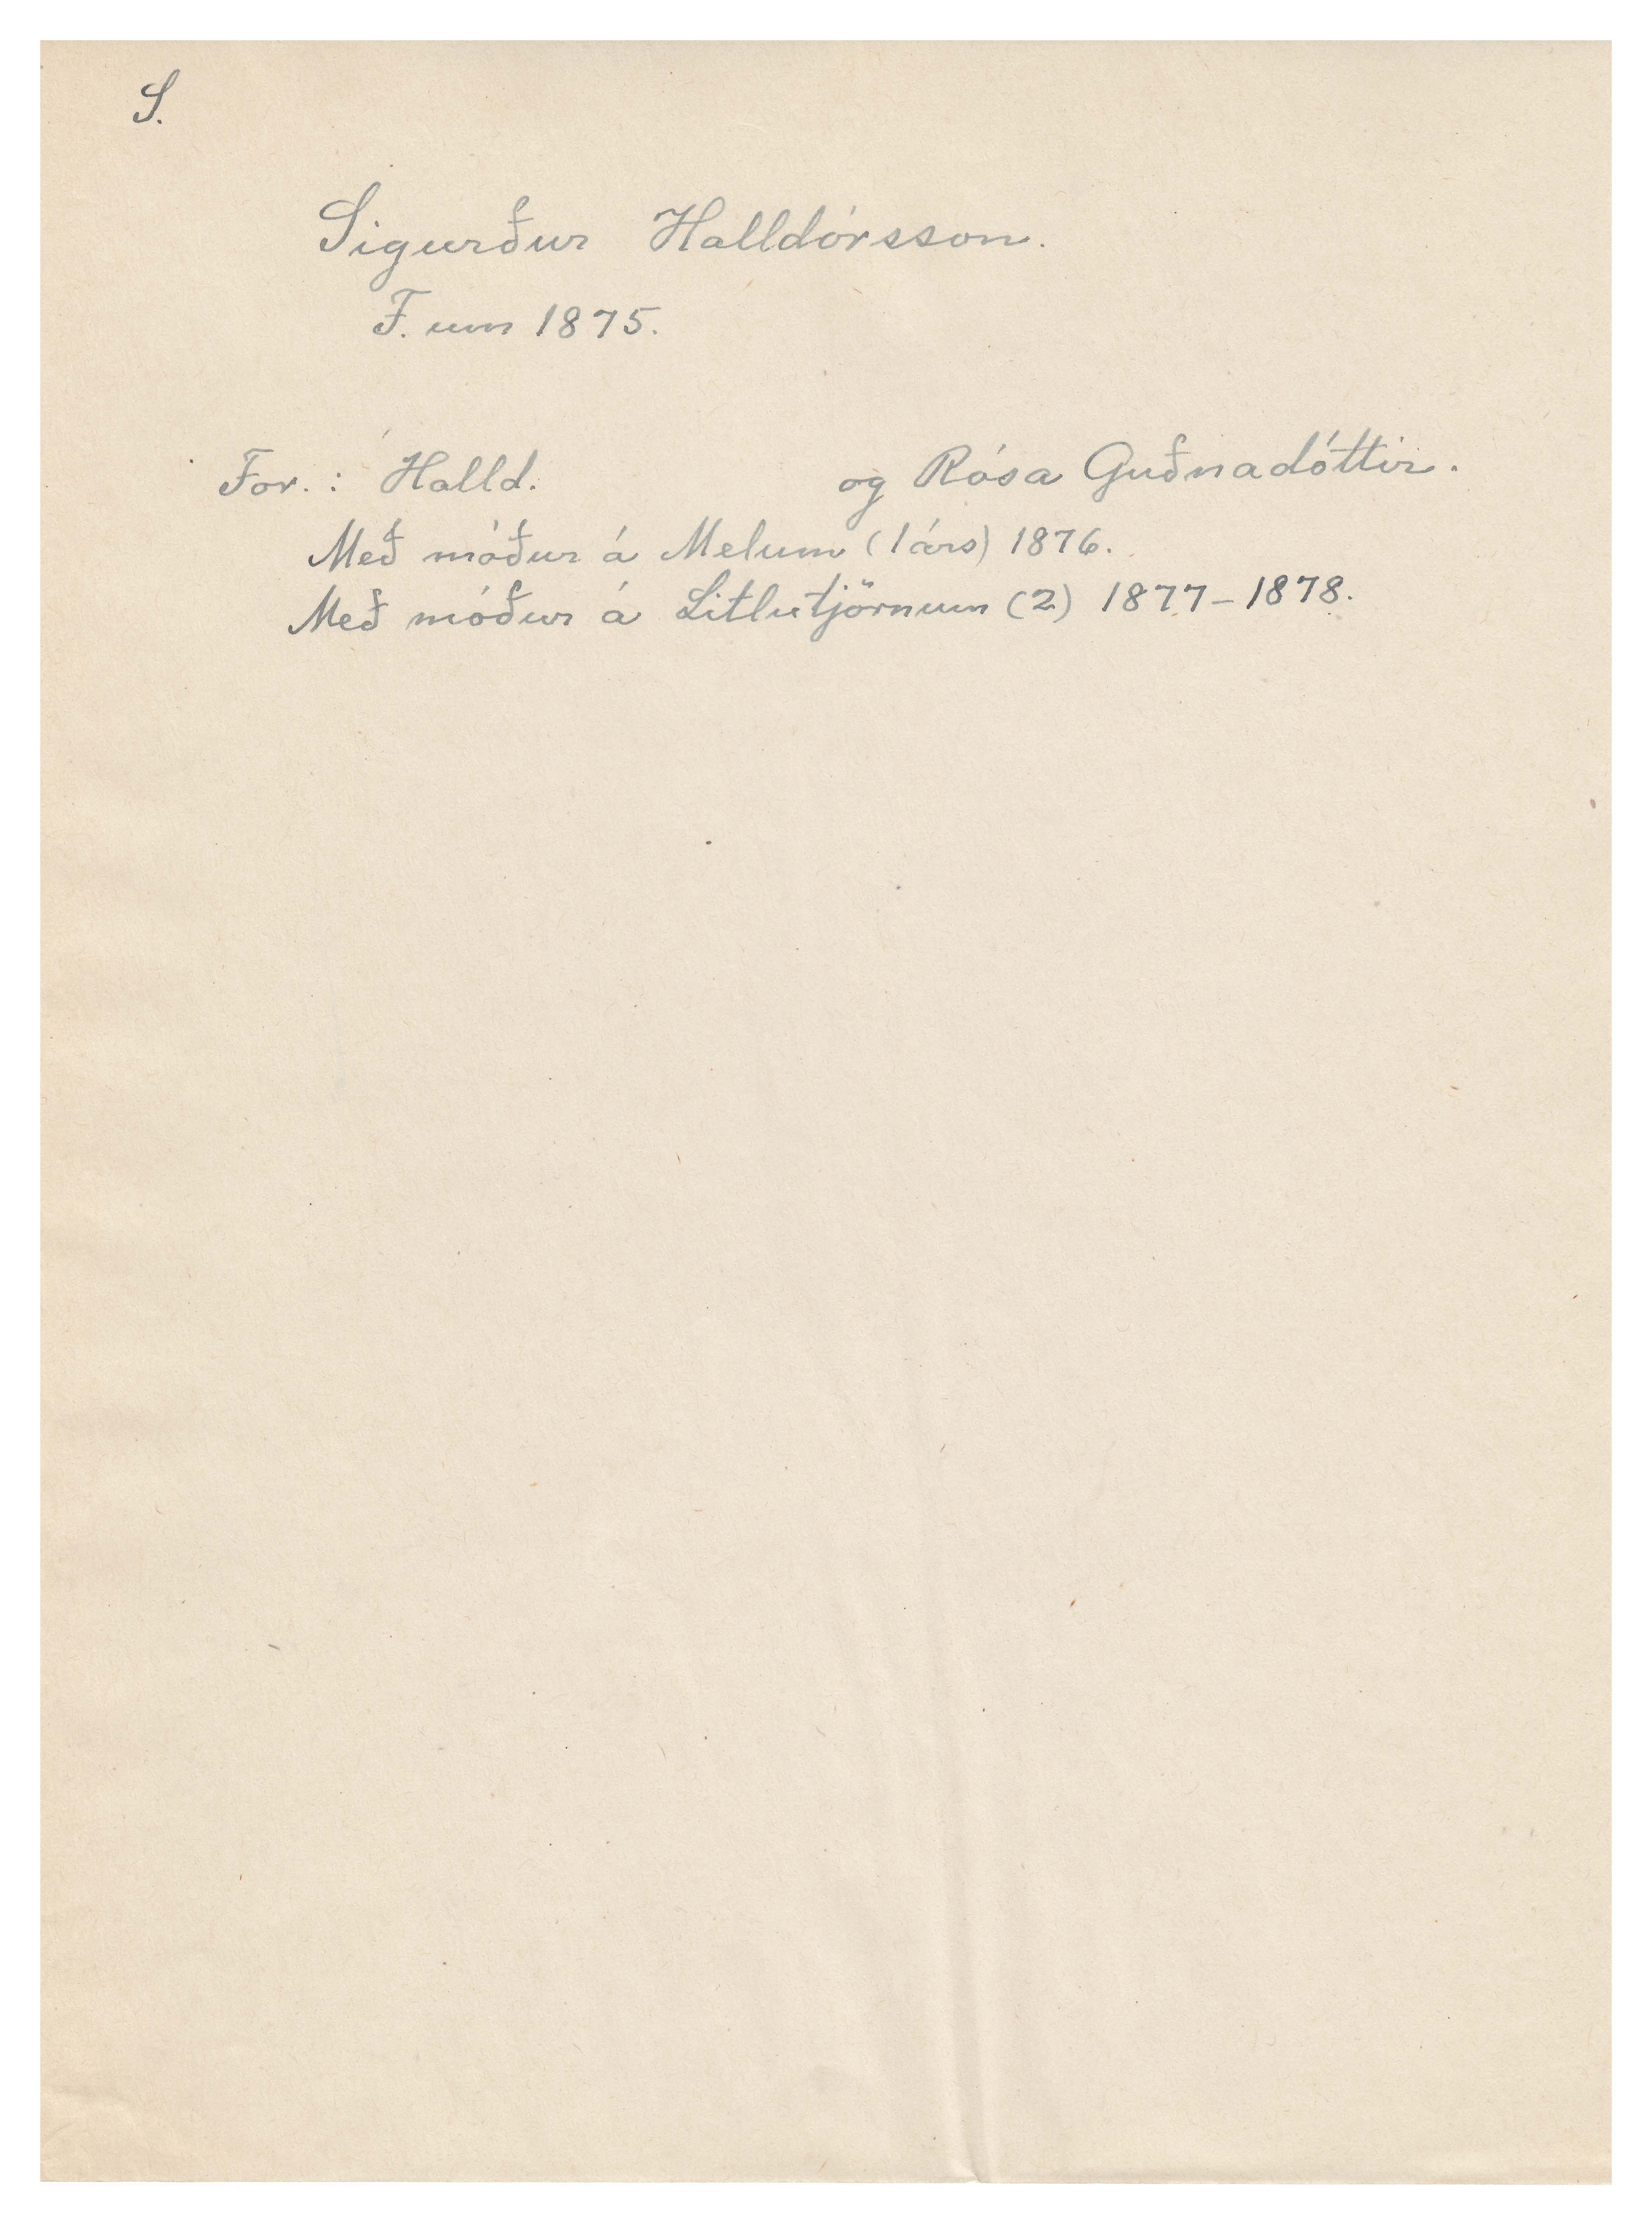 S.
Sigurður Halldórsson.
F. um 1875.
For. : Halld. og Rósa Guðnadóttir.
Með móður á Melum (1 árs) 1876.
Með móður á Litlutjörnum (2) 1877-1878.